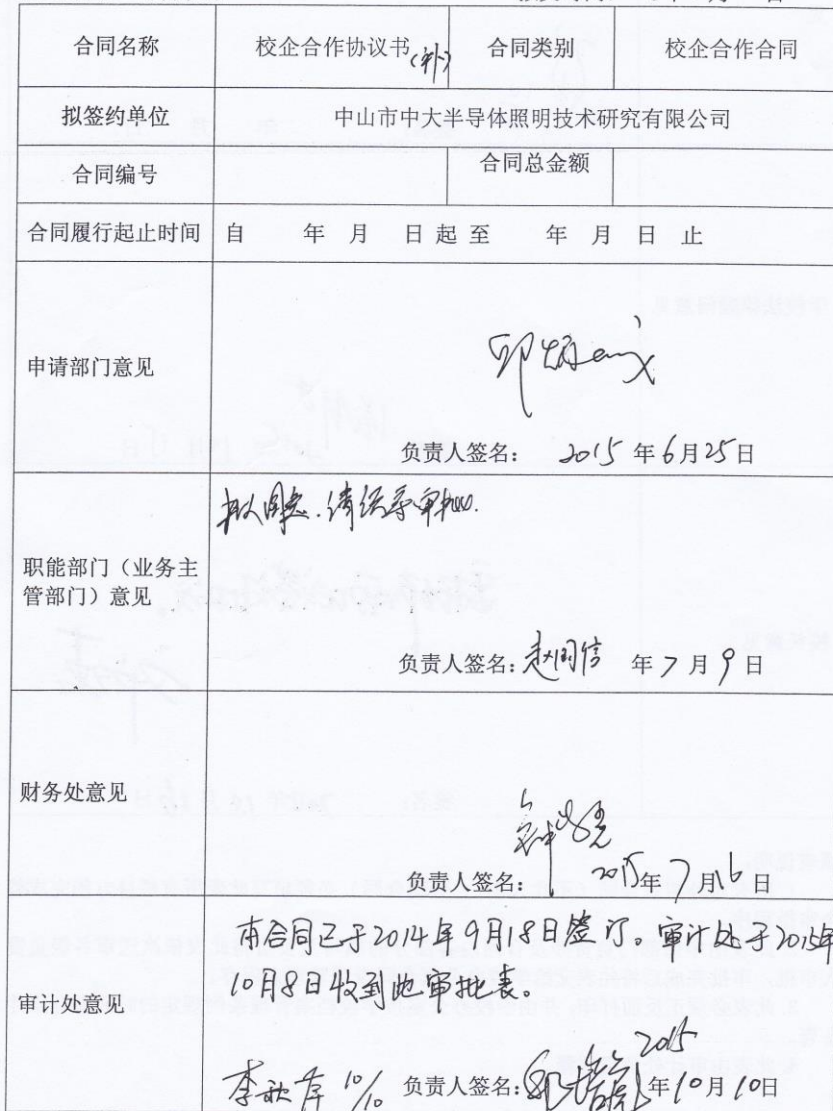 合同名称 校企合作协议书(补) 合同类别 校企合作合同
拟签约单位 中山市中大半导体照明技术研究有限公司
合同编号 合同总金额
合同履行起止时间 自 年 月 日 起 至 年 月 日 止
申请部门意见
负责人签名: 2015 年 6 月 25 日
请领导审批.
职能部门(业务主
管部门)意见
负责人签名: 赵国信 年 7 月 9 日
财务处意见
负责人签名: 2015 年 7 月 16 日
本合同已于2014年9月18日签订。审计处于2015年
10月8日收到此审批表。
审计处意见
2015
李秋 10/10 负责人签名: 年 10 月 10 日